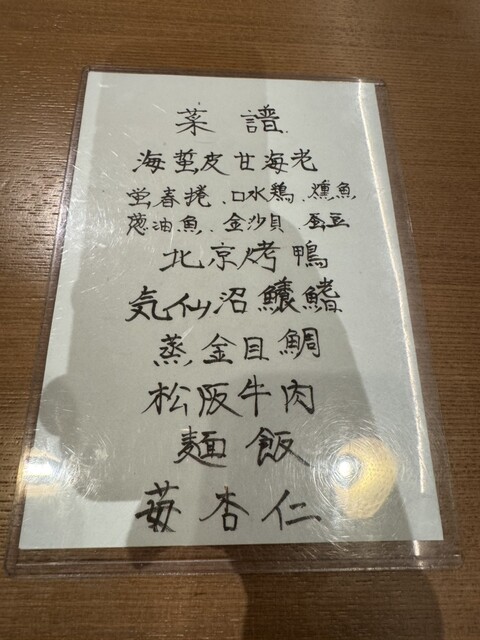 菜 譜
海蜇皮甘海老
蛍春捲、口水鶏、燻魚
葱油魚、金沙貝、蚕豆
北京烤鴨
気仙沼鱶鰭
蒸金目鯛
松阪牛肉
麺飯
苺杏仁